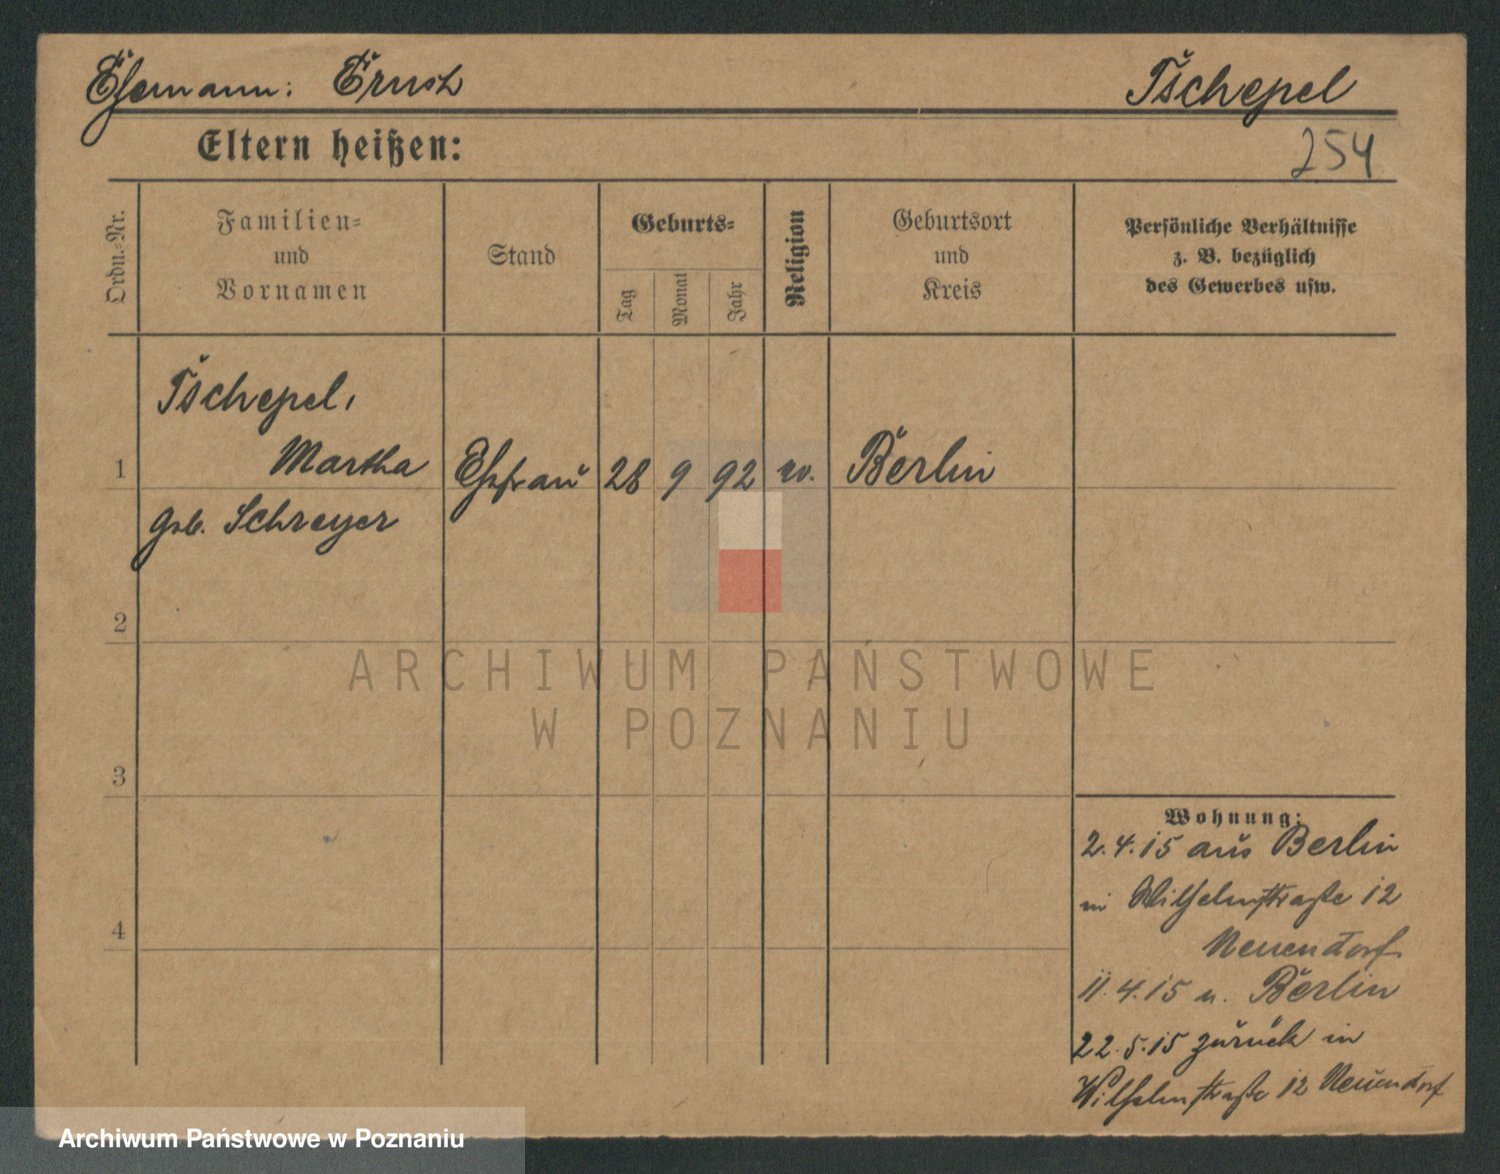 Ehemann: Ernst Tschepel
Eltern heißen:
254
Ordn.-Nr.
Familien-
und
Vornamen
Stand
Geburts-
Tag
Monat
Jahr
Religion
Geburtsort
und
Kreis
Persönliche Verhältnisse
z. B. bezüglich
des Gewerbes usw.
Tschepel,
1 Martha Ehefrau 28 9 92 ev. Berlin
geb. Schreyer
2
3
4
Wohnung:
2.4.15 aus Berlin
in Wilhelmstraße 12
Neuendorf
11.4.15 n. Berlin
22.5.15 zurück in
Wilhelmstraße 12 Neuendorf
ARCHIWUM PAŃSTWOWE
W POZNANIU
Archiwum Państwowe w Poznaniu